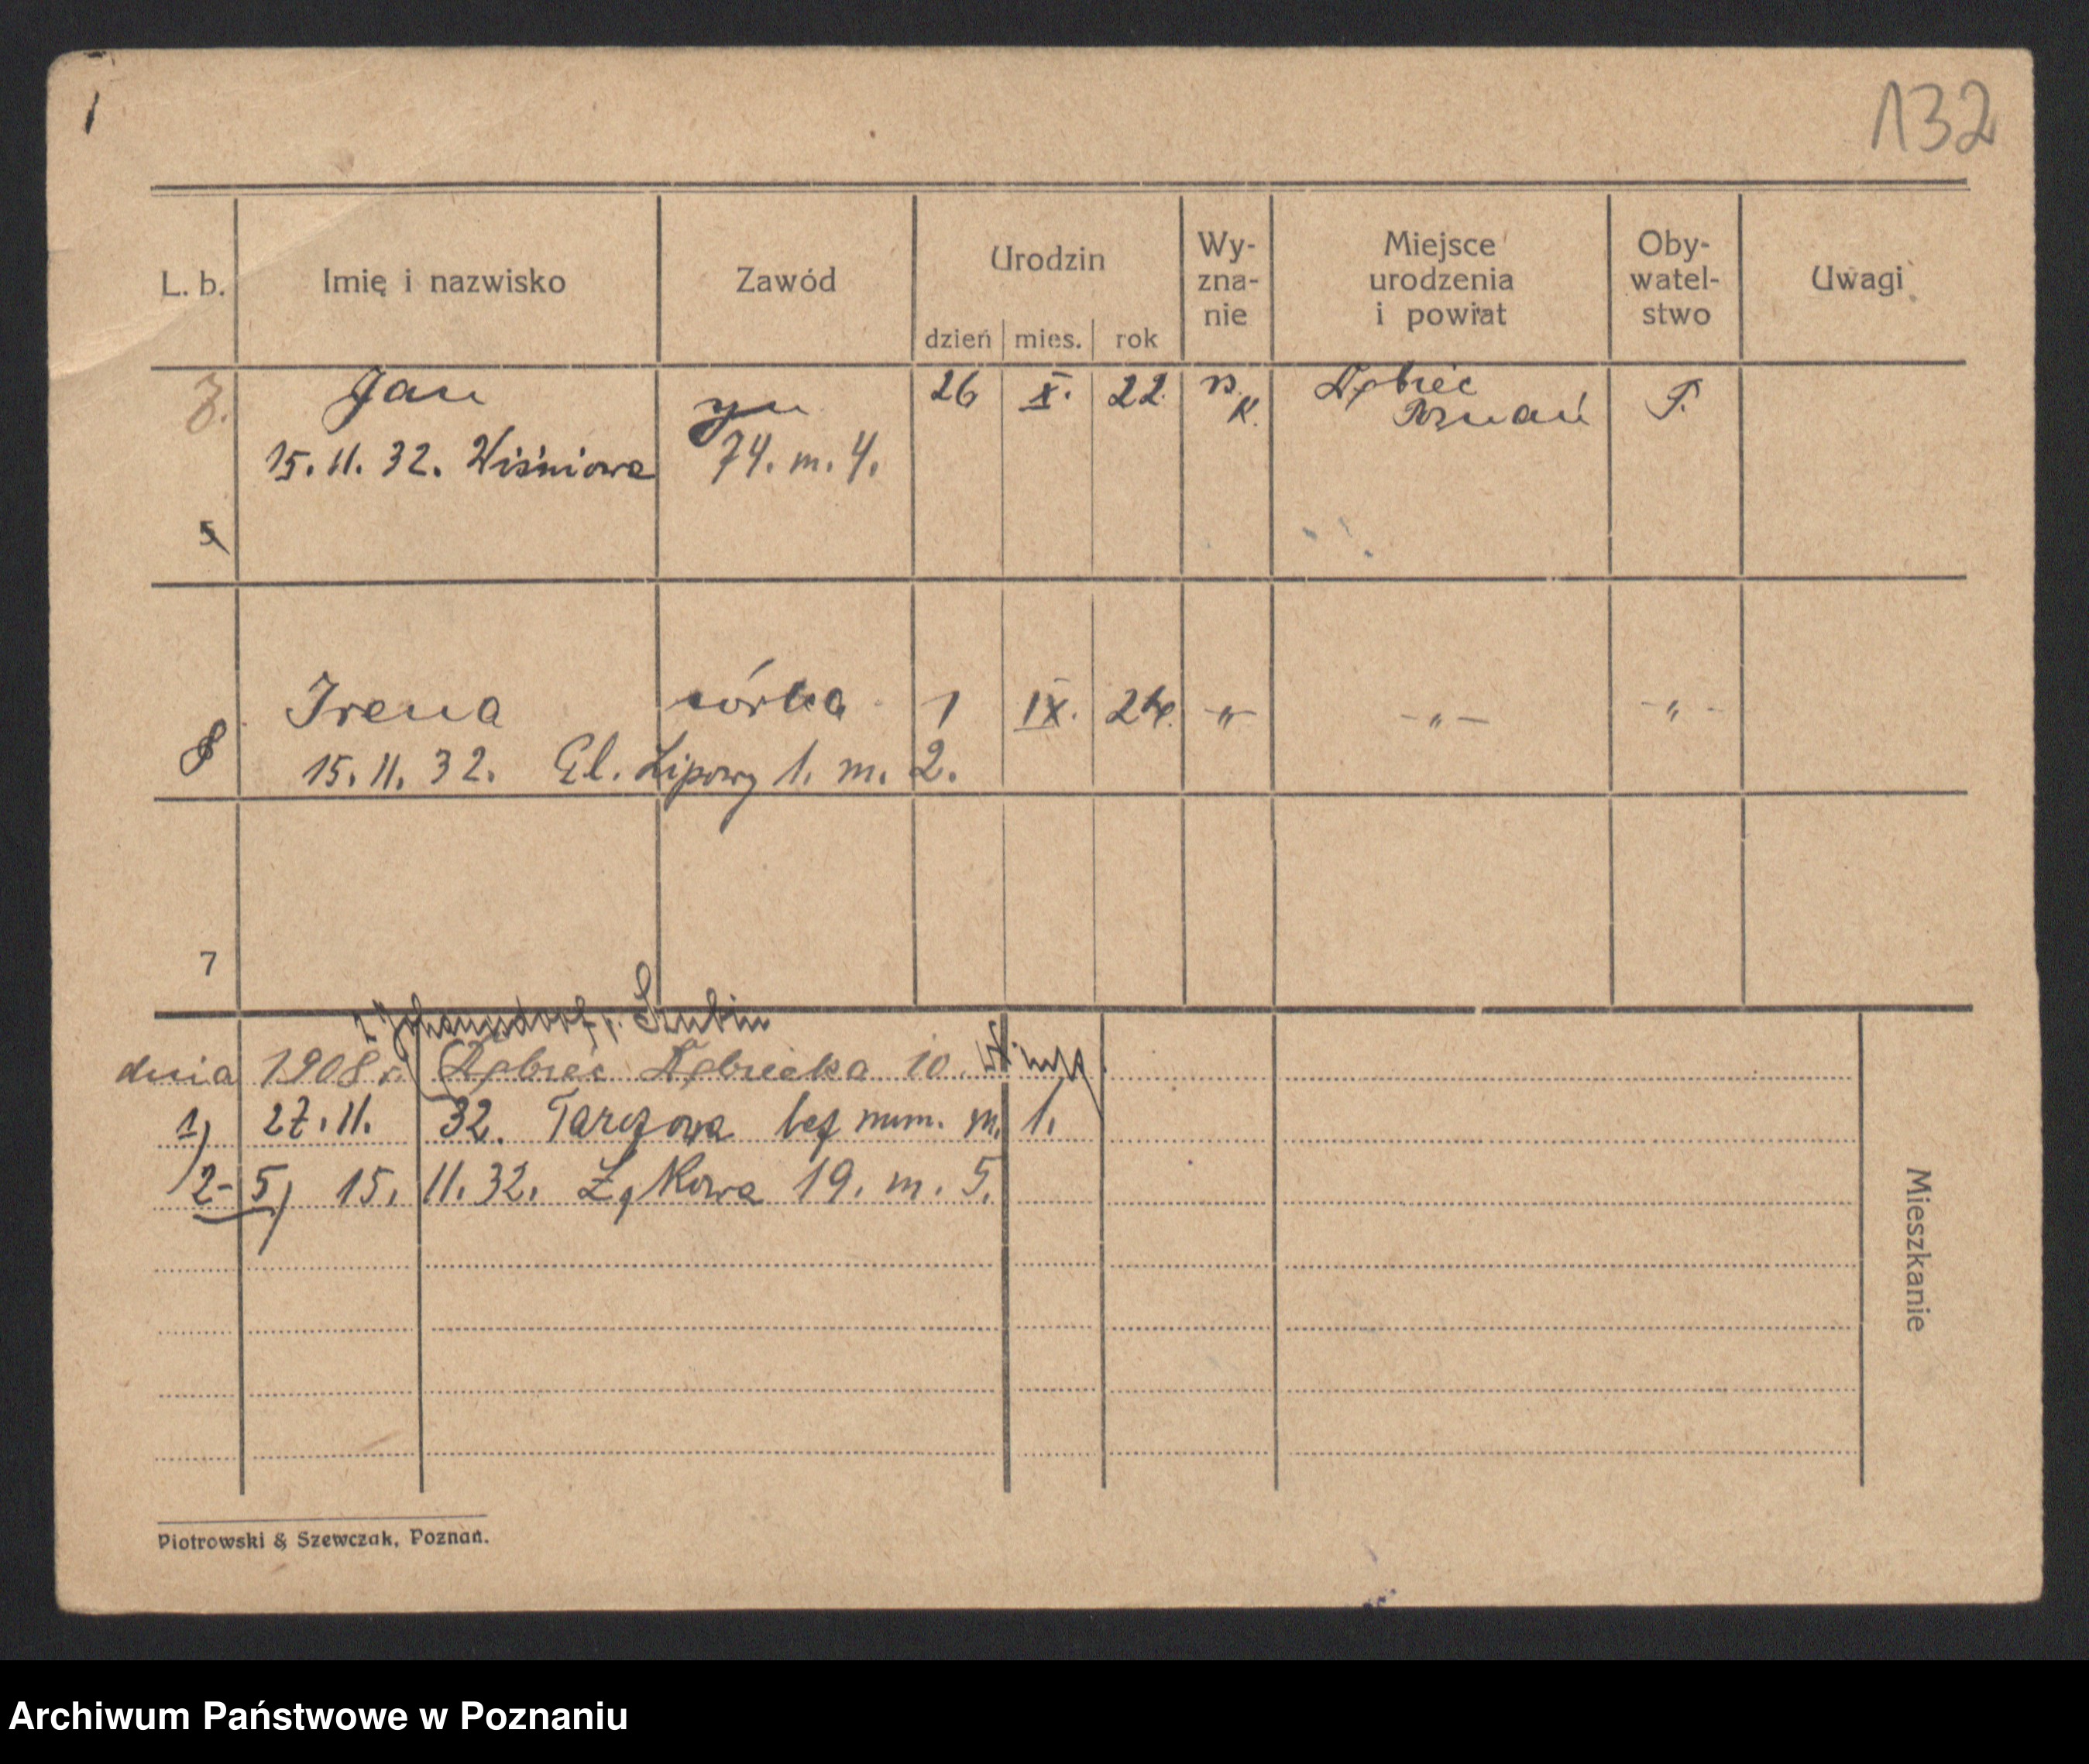 132
L. b. Imię i nazwisko Zawód Urodzin Wy-zna-nie Miejsce urodzenia i powiat Oby-watel-stwo Uwagi
dzień mies. rok
7. Jan syn 26 X. 22. rz. K. Dębiec Poznań P.
15. 11. 32. Wiśniowa 74. m. 4.
5
Irena córka 1 IX. 24. -"- -"- -"-
8 15. 11. 32. Gl. Lipowy 1. m. 2.
7
z Johannsdorf, p. Szubin
dnia 1908 r. Dębiec Dębiecka 10.
1) 27. 11. 32. Tarczowa bez num. m. 1.
2-5) 15. 11. 32. Łąkowa 19. m. 5.
Mieszkanie
Piotrowski & Szewczak, Poznań.
Archiwum Państwowe w Poznaniu